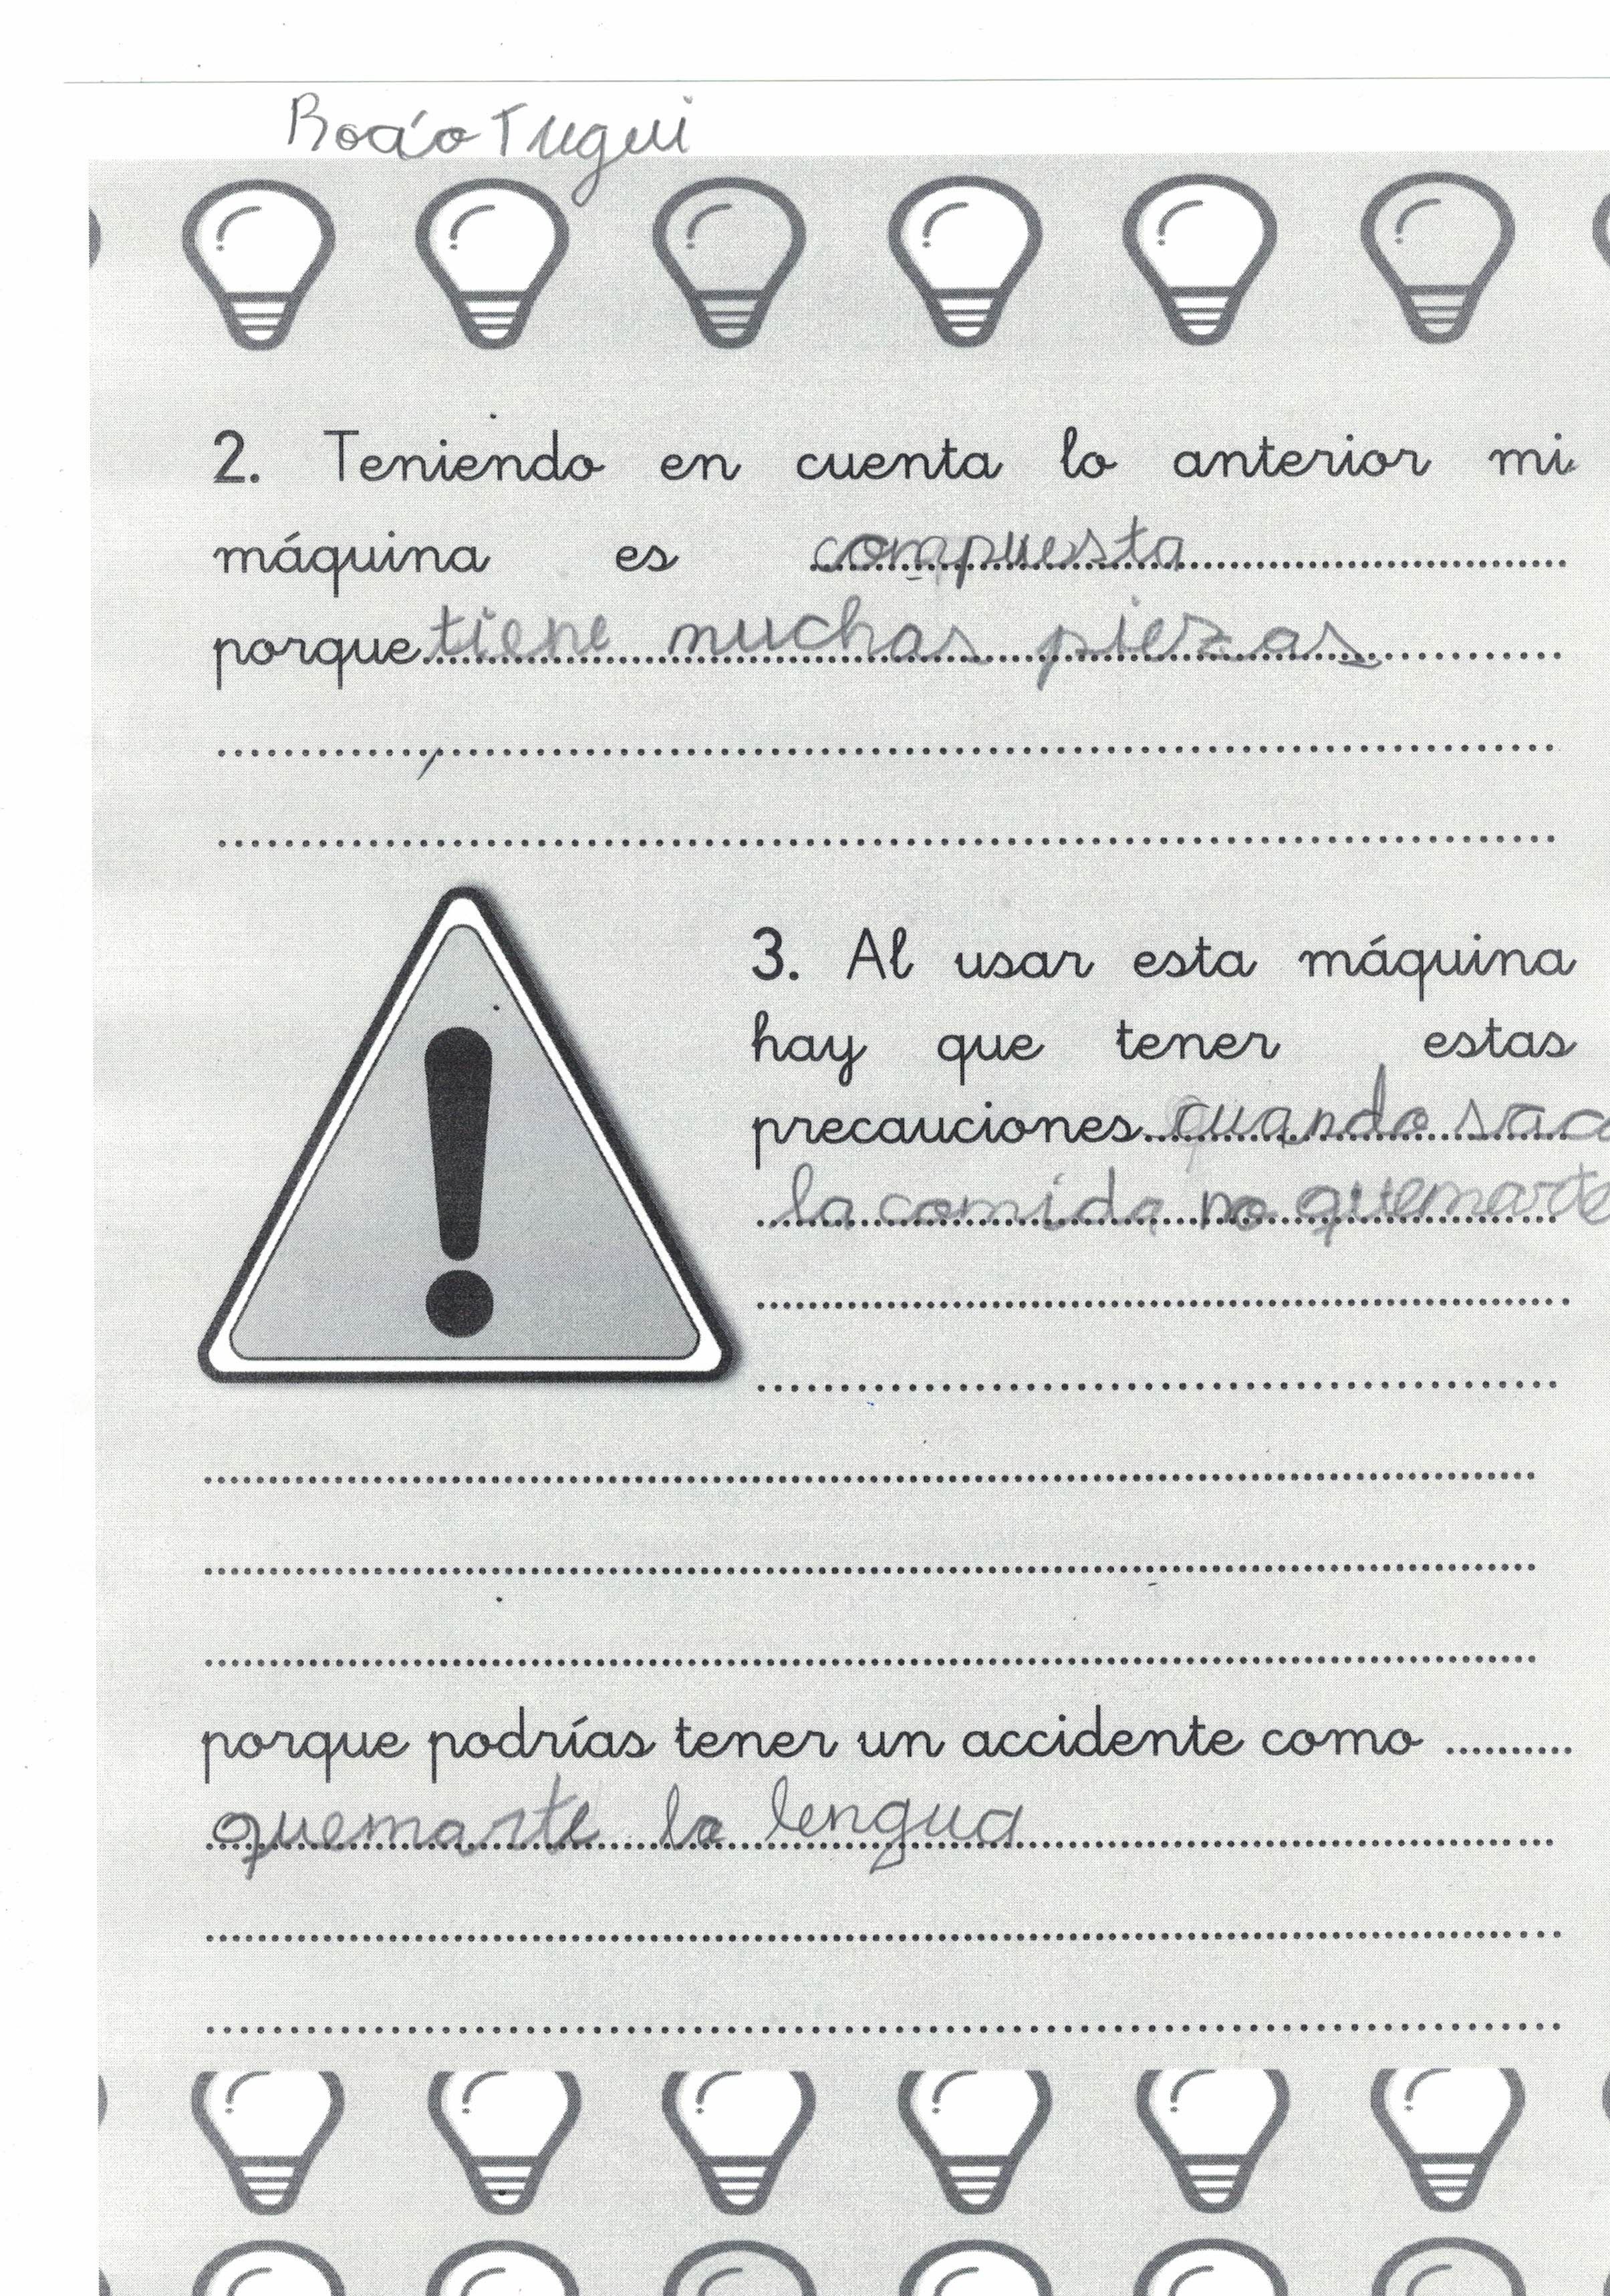 Rocío Tugui
2. Teniendo en cuenta lo anterior mi
máquina es compuesta
porque tiene muchas piezas
3. Al usar esta máquina
hay que tener estas
precauciones quando sac
la comida no quemarte
porque podrías tener un accidente como
quemarte la lengua